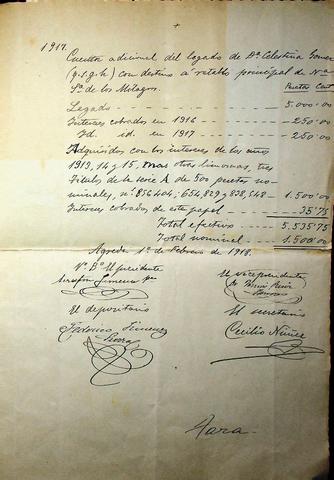 +
1917.
Cuenta adicional del legado de Dª Celestina Gomez
(q.s.g.h) con destino a retablo principal de Nª
Sª de los Milagros. Pesetas Cent
Legado 5.000'00
Intereses cobrados en 1916 250'00
Id. id. en 1917 250'00
Adquiridos con los intereses de los años
1913, 14 y 15, mas otras limosnas, tres
Titulos de la serie A de 500 pesetas no-
minales, nº 856404; 654,829 y 838,548 1.500'00
Intereses cobrados de este papel 35'75
Total efectivo 5.535'75
Total nominal 1.500'00
Agreda 1º de Febrero de 1918.
Vº Bº El presidente
Serafin Gimenez
El vicepresidente
El depositario
Federico Jimenez
El secretario
Cecilio Núñez